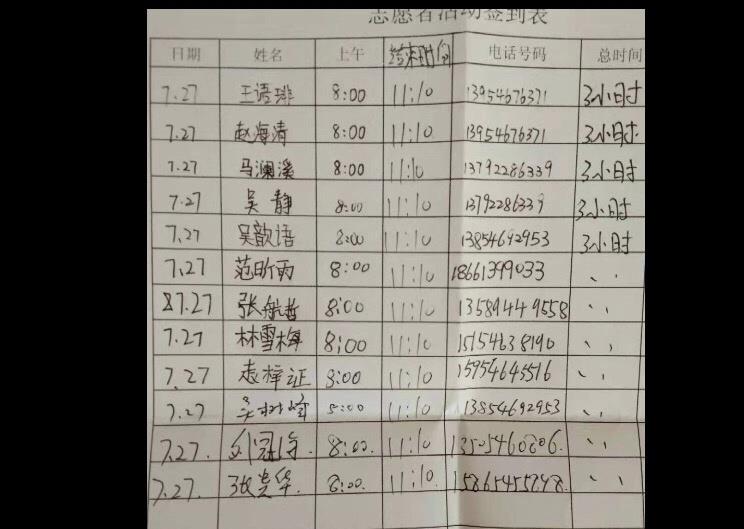 志愿者活动签到表
日期 姓名 上午 结束时间 电话号码 总时间
7.27 王语琲 8:00 11:10 13954676371 3小时
7.27 赵海清 8:00 11:10 13954676371 3小时.
7.27 马澜溪 8:00 11:10 13792286339 3小时
7.27 吴静 8:00 11:10 13792286339 3小时
7.27 吴歆语 8:00 11:10 13854692953 3小时
7.27 范昕雨 8:00 11:10 18661399033 、、
27.27 张航哲 8:00 11:10 13589449558 、、
7.27 林雪梅 8:00 11:10 15154638190 、、
7.27 志梓证 8:00 11:10 15954645516 、、
7.27 8:00 11:10 13854692953 、、
7.27. 8:00. 11:10 、、
7.27. 张贵华. 8:00. 11:10. 、、